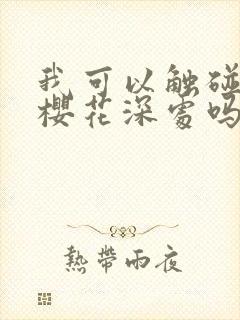 我可以触碰
樱花深处吗
热带雨夜